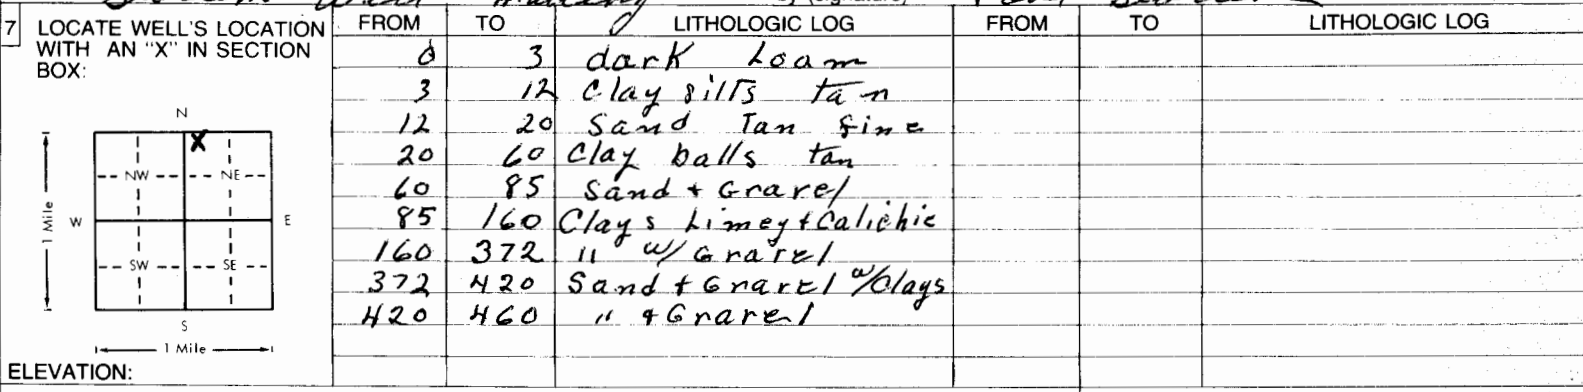 7 LOCATE WELL'S LOCATION WITH AN "X" IN SECTION BOX:
N
X
NW NE
W E
1 Mile
SW SE
S
1 Mile
ELEVATION:
FROM TO LITHOLOGIC LOG FROM TO LITHOLOGIC LOG
0 3 dark Loam
3 12 Clay silts tan
12 20 Sand Tan fine
20 60 Clay balls tan
60 85 Sand + Gravel
85 160 Clays Limey + Calichie
160 372 " w/ Gravel
372 420 Sand + Gravel w/Clays
420 460 " + Gravel